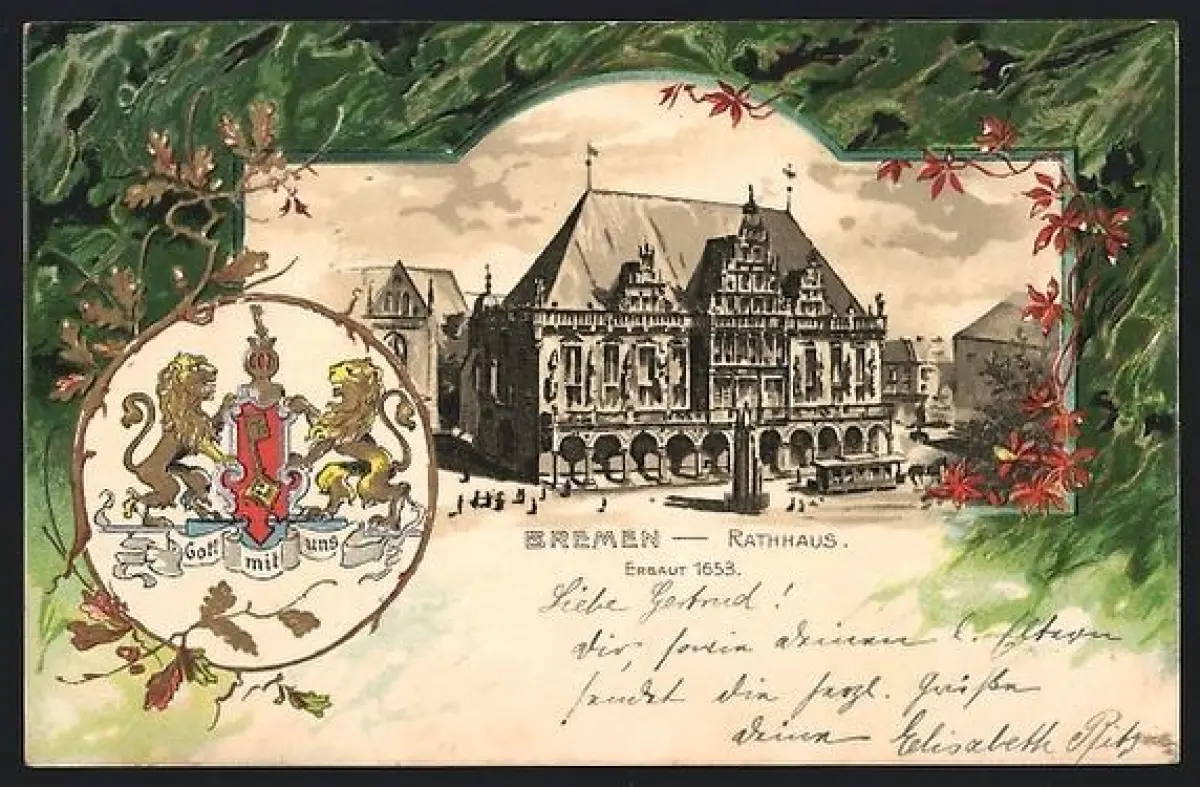 Gott mit uns
BREMEN — RATHHAUS.
ERBAUT 1653.
Liebe Gertrud!
Dir, sowie deinen l. Eltern
sendet die herzl. Grüße
deine Elisabeth